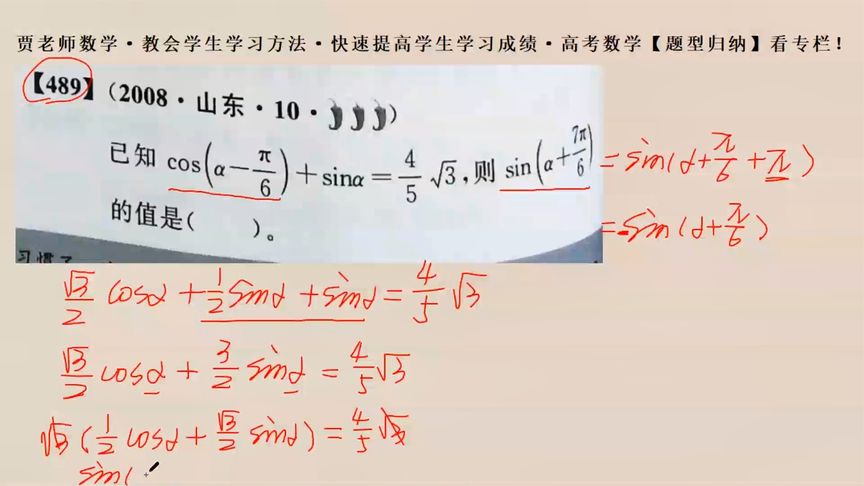 贾老师数学·教会学生学习方法·快速提高学生学习成绩·高考数学【题型归纳】看专栏!
【489】(2008·山东·10·)
已知 cos(α-π/6)+sinα=4/5 √3,则 sin(α+7π/6) =sin(α+π/6+π)
的值是( )。
=-sin(α+π/6)
习惯了
√3/2 cosα+1/2 sinα+sinα=4/5 √3
√3/2 cosα+3/2 sinα=4/5 √3
√3(1/2 cosα+√3/2 sinα)=4/5 √3
sin(